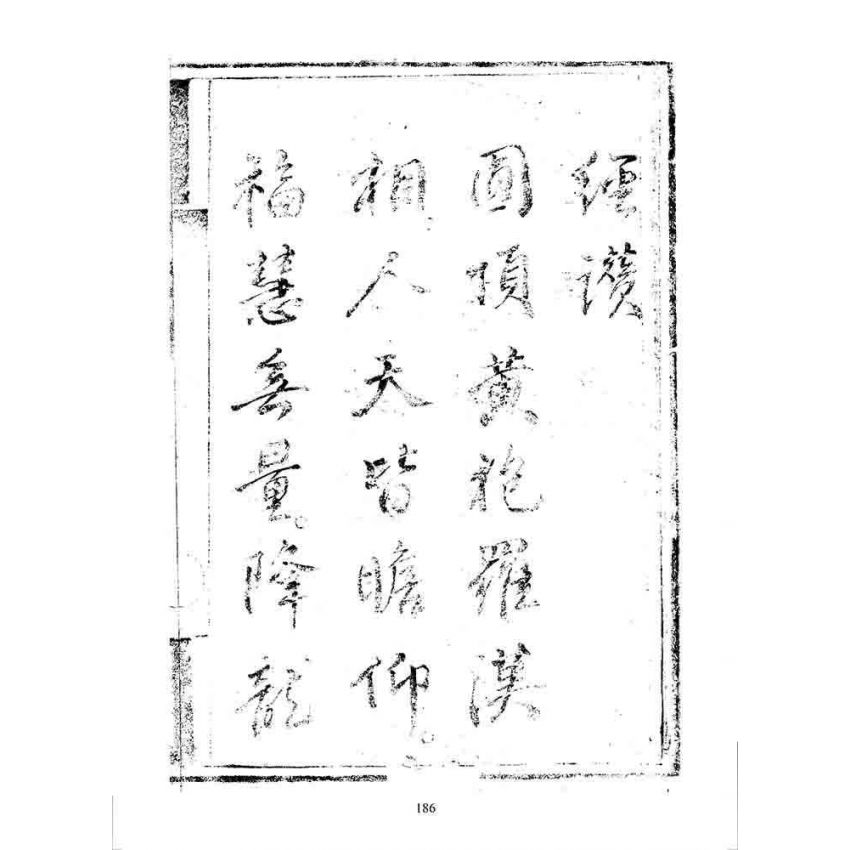 經讚
圓頂黃袍羅漢
相。人天皆瞻仰。
福慧無量。降龍
186